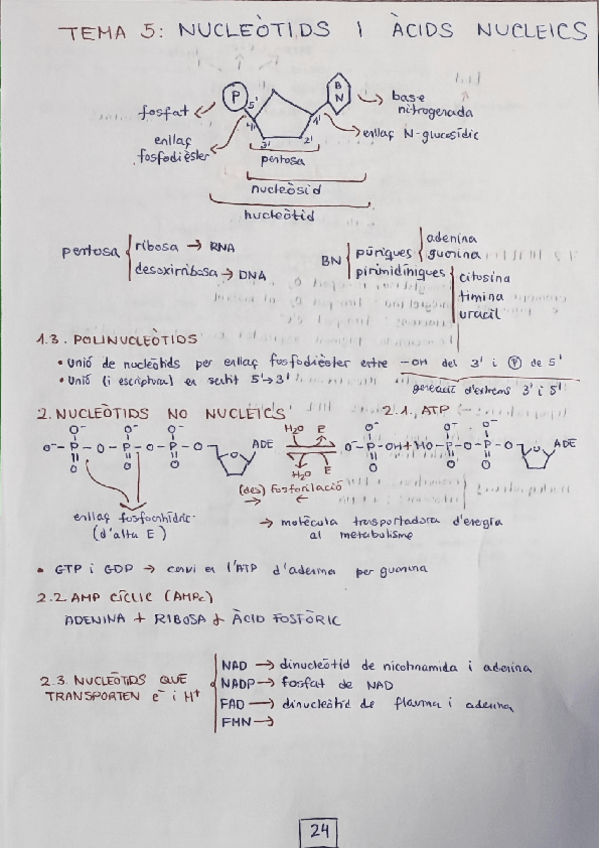 TEMA 5: NUCLEÒTIDS I ÀCIDS NUCLEICS
P
B
N
5'
4'
3'
2'
1'
fosfat
base
nitrogenada
enllaç
fosfodièster
enllaç N-glucosídic
pentosa
nucleòsid
nucleòtid
pentosa
ribosa → RNA
desoxirribosa → DNA
BN
púriques
adenina
guanina
pirimidíniques
citosina
timina
uracil
1.3. POLINUCLEÒTIDS
• Unió de nucleòtids per enllaç fosfodièster entre -OH del 3' i P de 5'
• Unió (i escriptura) en sentit 5'→3'
generació d'extrems 3' i 5'
2. NUCLEÒTIDS NO NUCLEICS
2.1. ATP
O⁻ O⁻ O⁻
O⁻-P-O-P-O-P-O
O O O
O
ADE
H₂O E
H₂O E
(des) fosforilació
O⁻ O⁻ O⁻
O⁻-P-OH + HO-P-O-P-O
O O O
O
ADE
enllaç fosfoanhídric
(d'alta E)
→ molècula transportadora d'energia
al metabolisme
• GTP i GDP → canvi en l'ATP d'adenina per guanina
2.2 AMP CÍCLIC (AMPc)
ADENINA + RIBOSA + ÀCID FOSFÒRIC
2.3. NUCLEÒTIDS QUE
TRANSPORTEN e⁻ i H⁺
NAD → dinucleòtid de nicotinamida i adenina
NADP → fosfat de NAD
FAD → dinucleòtid de flavina i adenina
FMN →
24